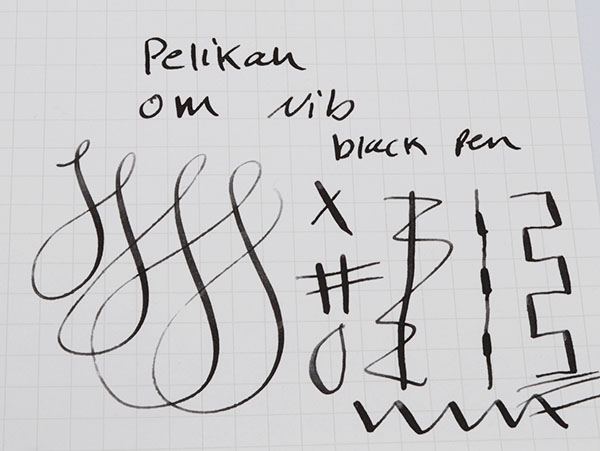 Pelikan
om Nib
black pen
X
#
O